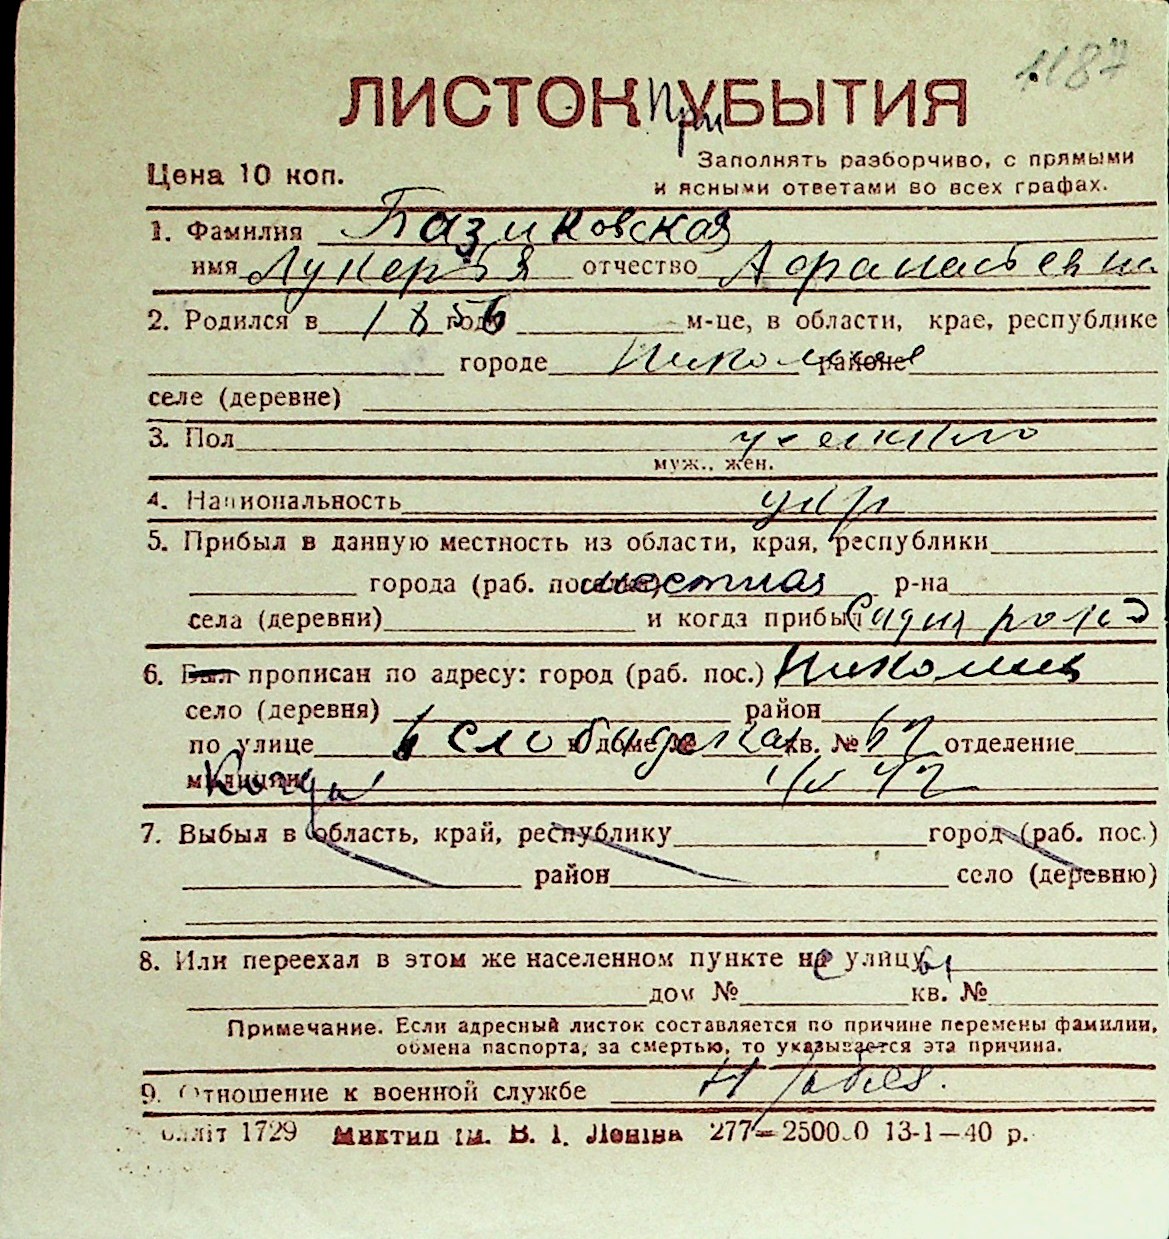 1187
ЛИСТОК При УБЫТИЯ
Цена 10 коп.
Заполнять разборчиво, с прямыми
и ясными ответами во всех графах.
1. Фамилия Базиковская
имя Лукерья отчество Афанасьевна
2. Родился в 1856 году м-це, в области, крае, республике
городе Николаев районе
селе (деревне)
3. Пол
муж., жен.
4. Национальность укр
5. Прибыл в данную местность из области, края, республики
города (раб. поселка) местная р-на
села (деревни) и когда прибыл
6. Был прописан по адресу: город (раб. пос.) Николаев
село (деревня) район
по улице 6 Слободская дом № кв. № 67 отделение
милиции
7. Выбыл в область, край, республику город (раб. пос.)
район село (деревню)
8. Или переехал в этом же населенном пункте на улицу
дом № кв. №
Примечание. Если адресный листок составляется по причине перемены фамилии,
обмена паспорта, за смертью, то указывается эта причина.
9. Отношение к военной службе
1729 Миктип ім. В. І. Леніна 277—2500.0 13-1—40 р.